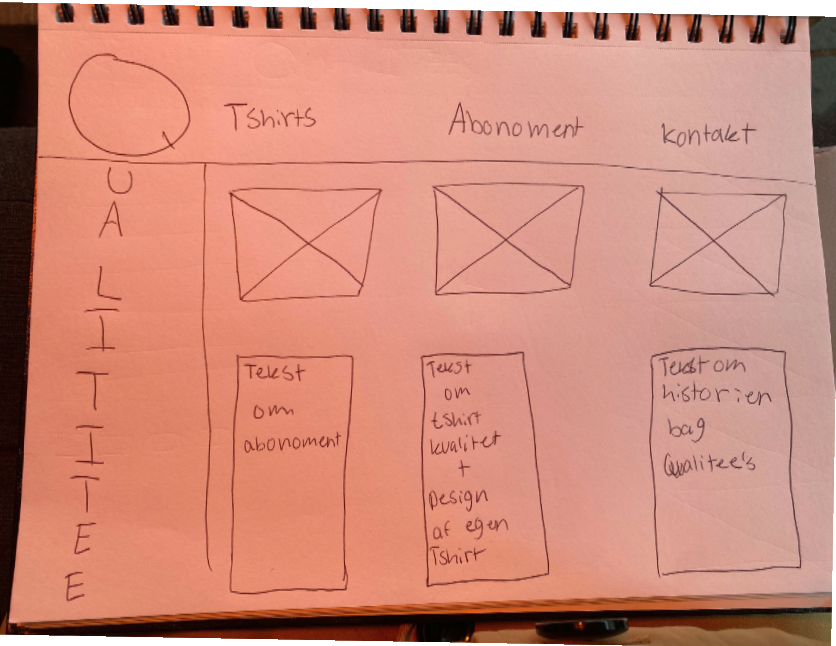 Tshirts
Abonoment
kontakt
Q
U
A
L
I
T
I
T
E
E
Tekst
om
abonoment
Tekst
om
tshirt
kvalitet
+
Design
af egen
Tshirt
Tekst om
historien
bag
Qualitee's